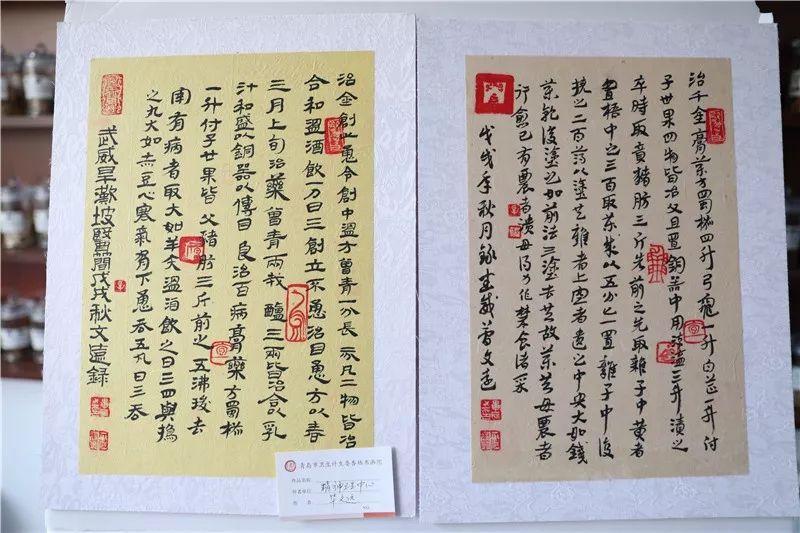 治金創止恿令創中溫方曾青一分長示凡二物皆冶
合和溫酒飲一刀日三創立不恿治目恿方以春
三月上旬治藥曾青兩戎鹽三兩皆冶合以乳
汁和盛以銅器以傅目良治百病膏藥方蜀椒
一升付子廿果皆父豬肪三斤煎之五沸浚去
有病者取大如羊矢溫酒飲之日三四與搗
之丸大如赤豆心寒氣脅下恿吞五丸日三吞
武威旱灘坡醫簡戊戌秋文遠錄
治千金膏藥方蜀椒四升弓窮一升白芷一升付
子卅果四物皆冶父且置銅器中用淳醯三升漬之
卒時取賁豬肪三斤先煎之先取雞子中黃者
置梧中之三百取藥成以五分匕一置雞子中復
撓之二百薄以塗其雍者上空者遺之中央大如錢
藥乾復塗之如前法三塗去其故藥其毋農者
行愈已有農者潰毋得力作禁食諸采
戊戌年秋月錄文遠
青岛市卫生计生委杏林书画院
作品名称
作者单位 精神卫生中心
作者